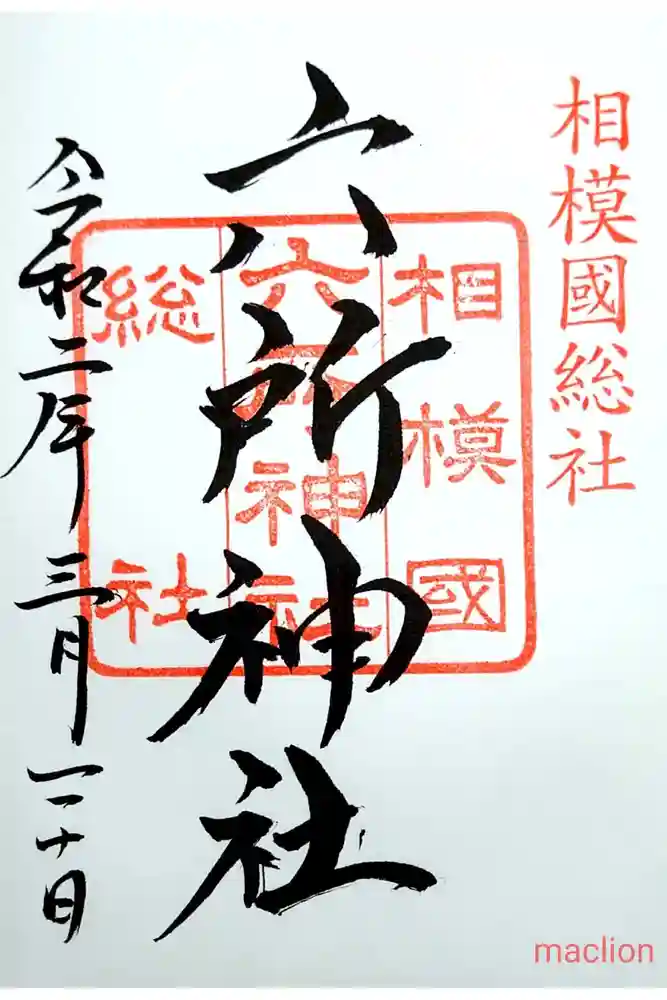 相模國総社
六所神社
相模國
六所神社
総社
令和二年三月二十日
maclion